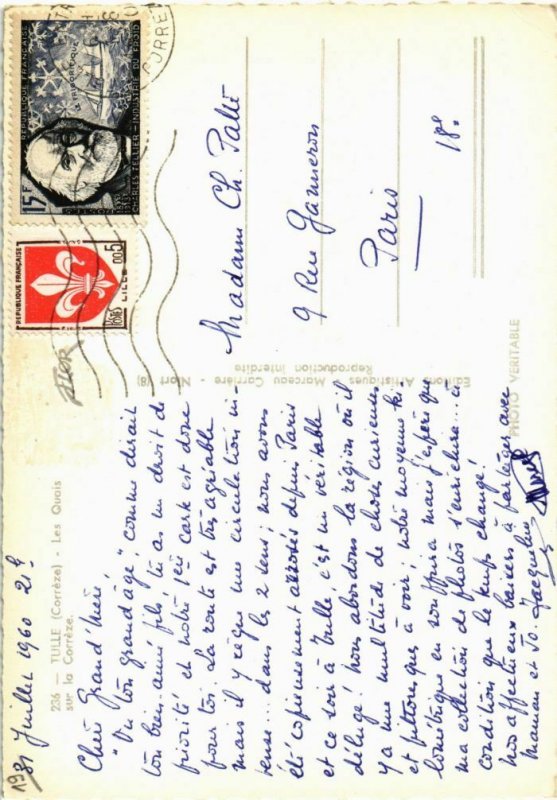 236 — TULLE (Corrèze) - Les Quais
sur la Corrèze.
1960 21h
Juillet
Chère Grand'Mère,
"Vu ton grand âge", comme dirait
ton bien-aimé fils, tu as un droit de
priorité et notre 1ère carte est donc
pour toi. La route est très agréable
mais il y règne une circulation in-
tense... dans les 2 sens; nous avons
été copieusement arrosés depuis Paris
et ce soir à Tulle, c'est un véritable
déluge! Nous abordons la région où il
y a une multitude de choses curieuses
et pittoresques à voir; notre moyenne ki-
lométrique en souffrira mais j'espère que
ma collection de photos s'enrichira... à
condition que le temps change!
Nos affectueux baisers à partager avec
Maman et Jo. Jacqueline
Editions Artistiques Marceau Carrière - Niort (8)
Reproduction interdite
PHOTO VERITABLE
Madame Ch.
9 Rue Ganneron
Paris
18e
REPUBLIQUE FRANÇAISE
LE FRIGORIFIQUE
CHARLES TELLIER - INDUSTRIE DU FROID
15F
POSTES
REPUBLIQUE FRANÇAISE
LILLE
0.05
POSTES
CORRE